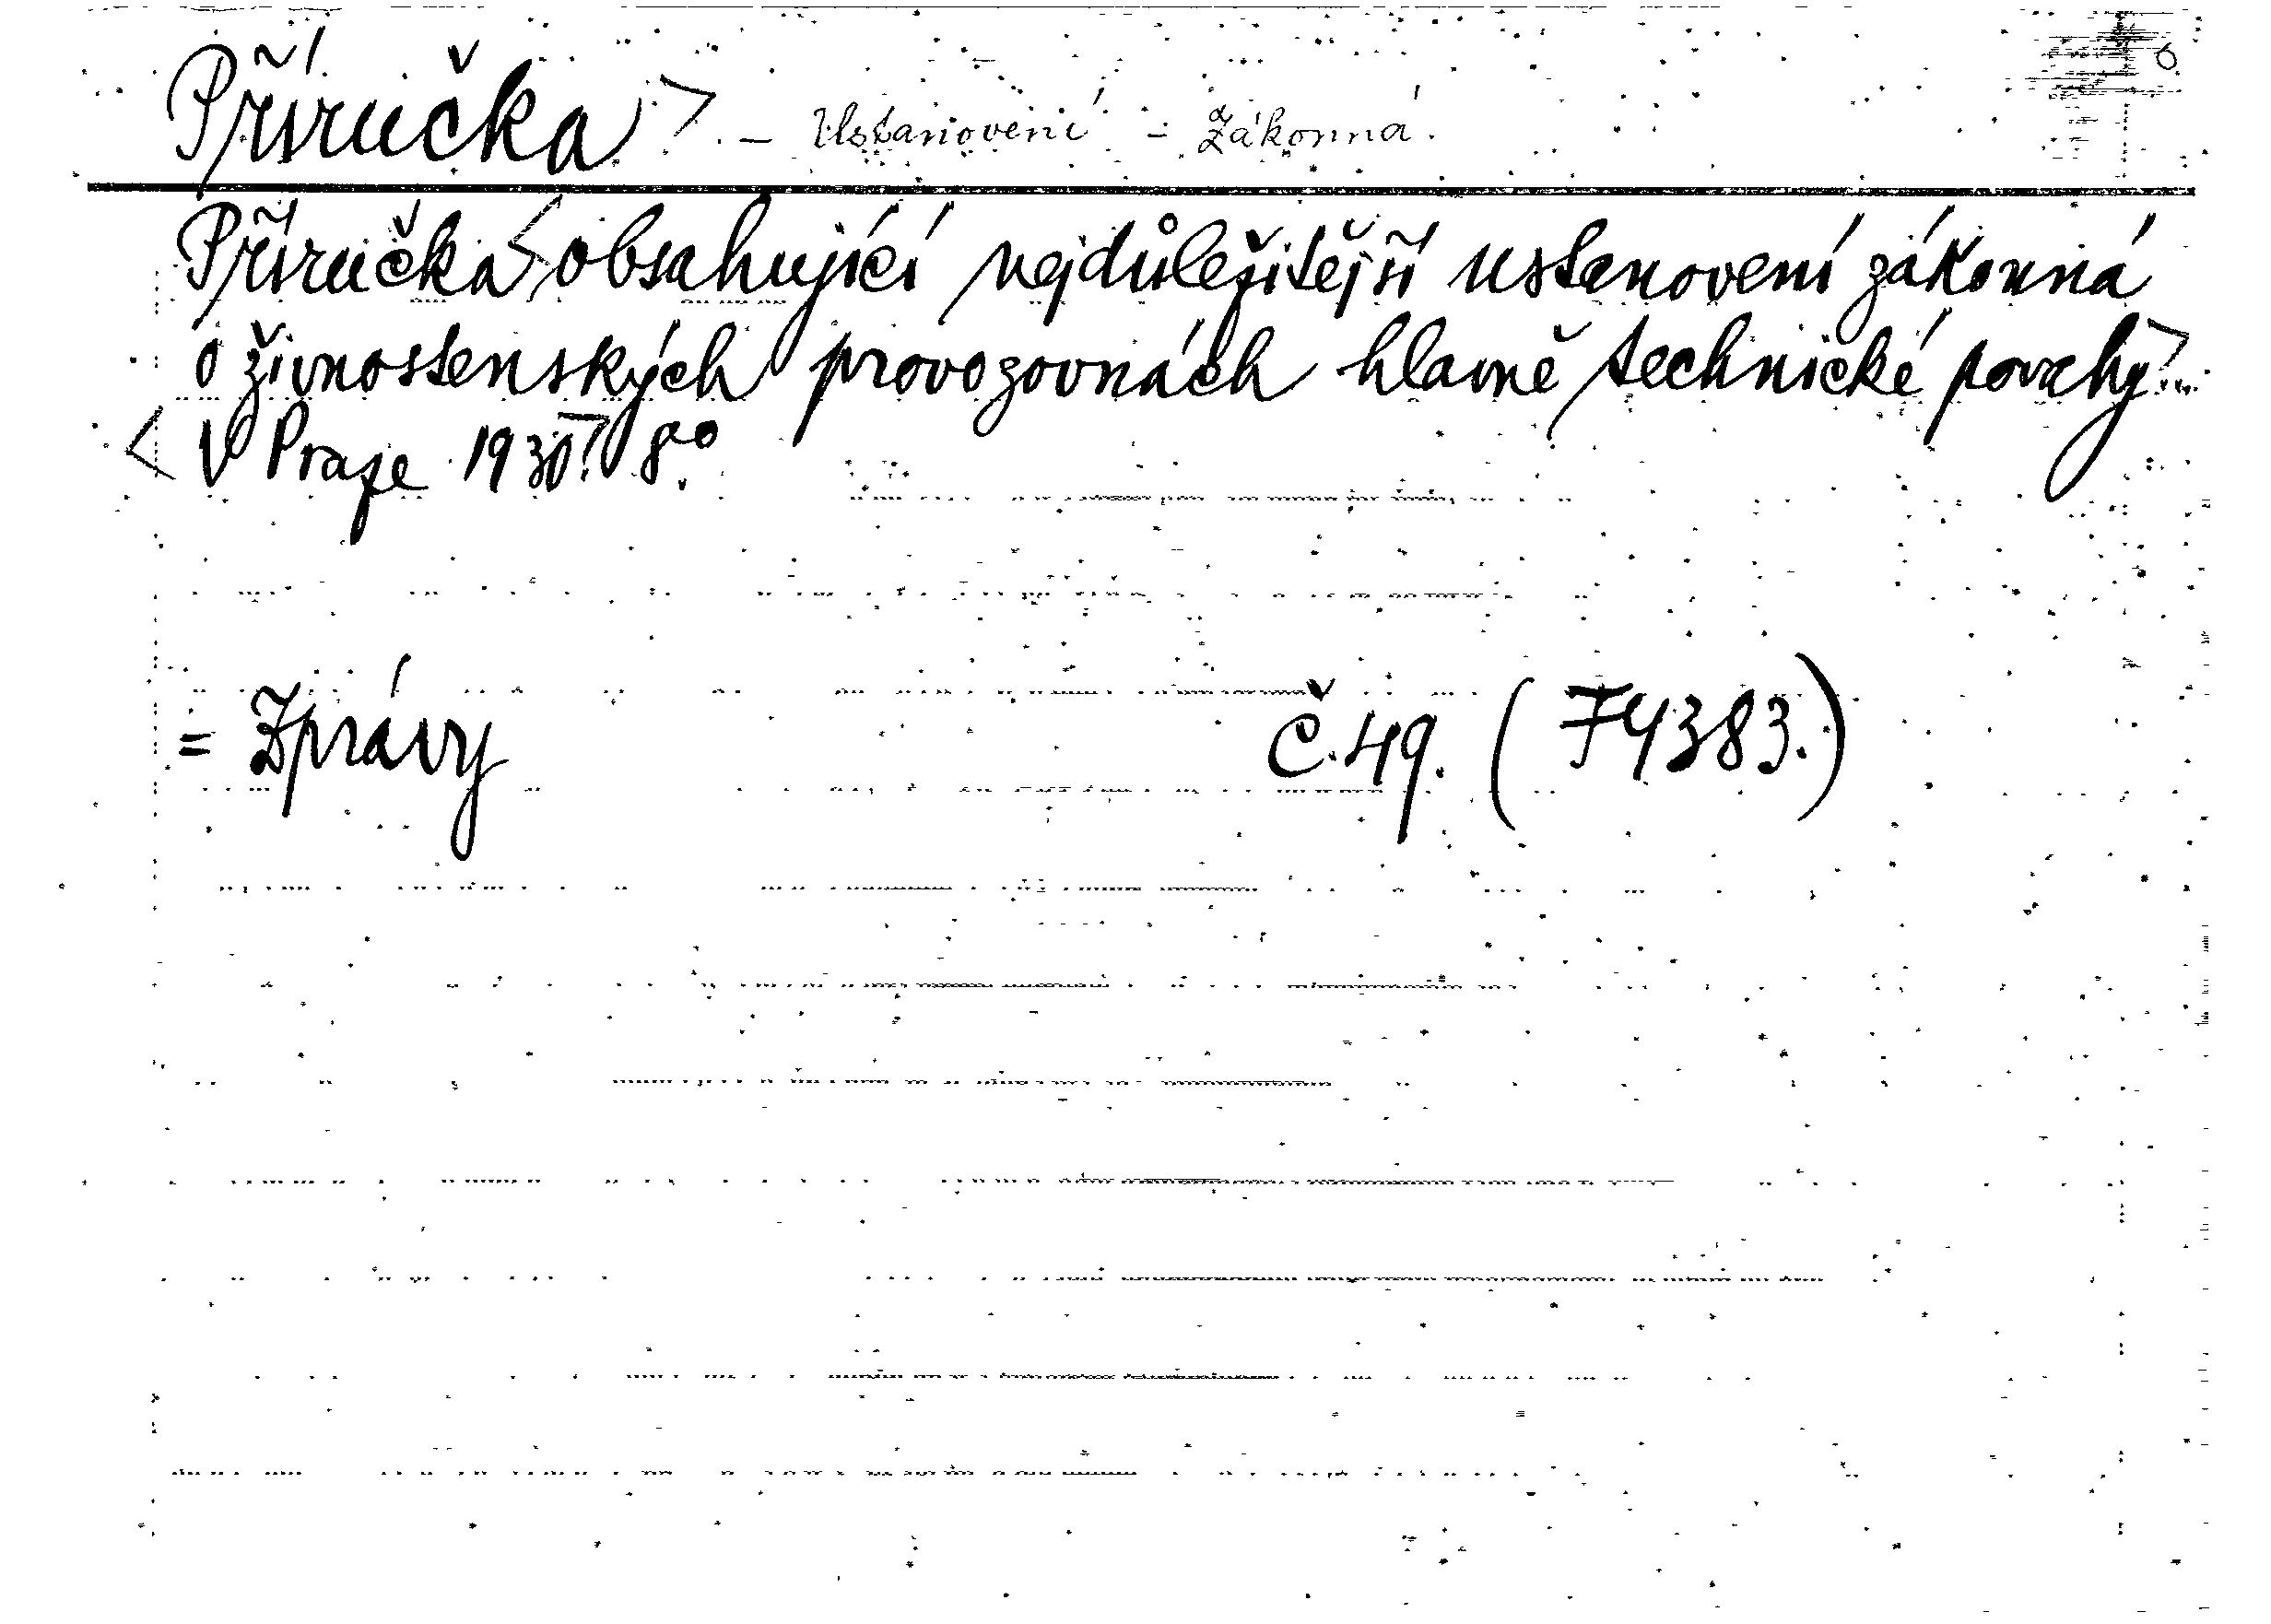 Příručka - Ustanovení - Zákonná.
6
Příručka obsahující nejdůležitější ustanovení zákonná
o živnostenských provozovnách hlavně technické povahy...
V Praze 1930. 8°.
= Zprávy č. 49. (74383.)